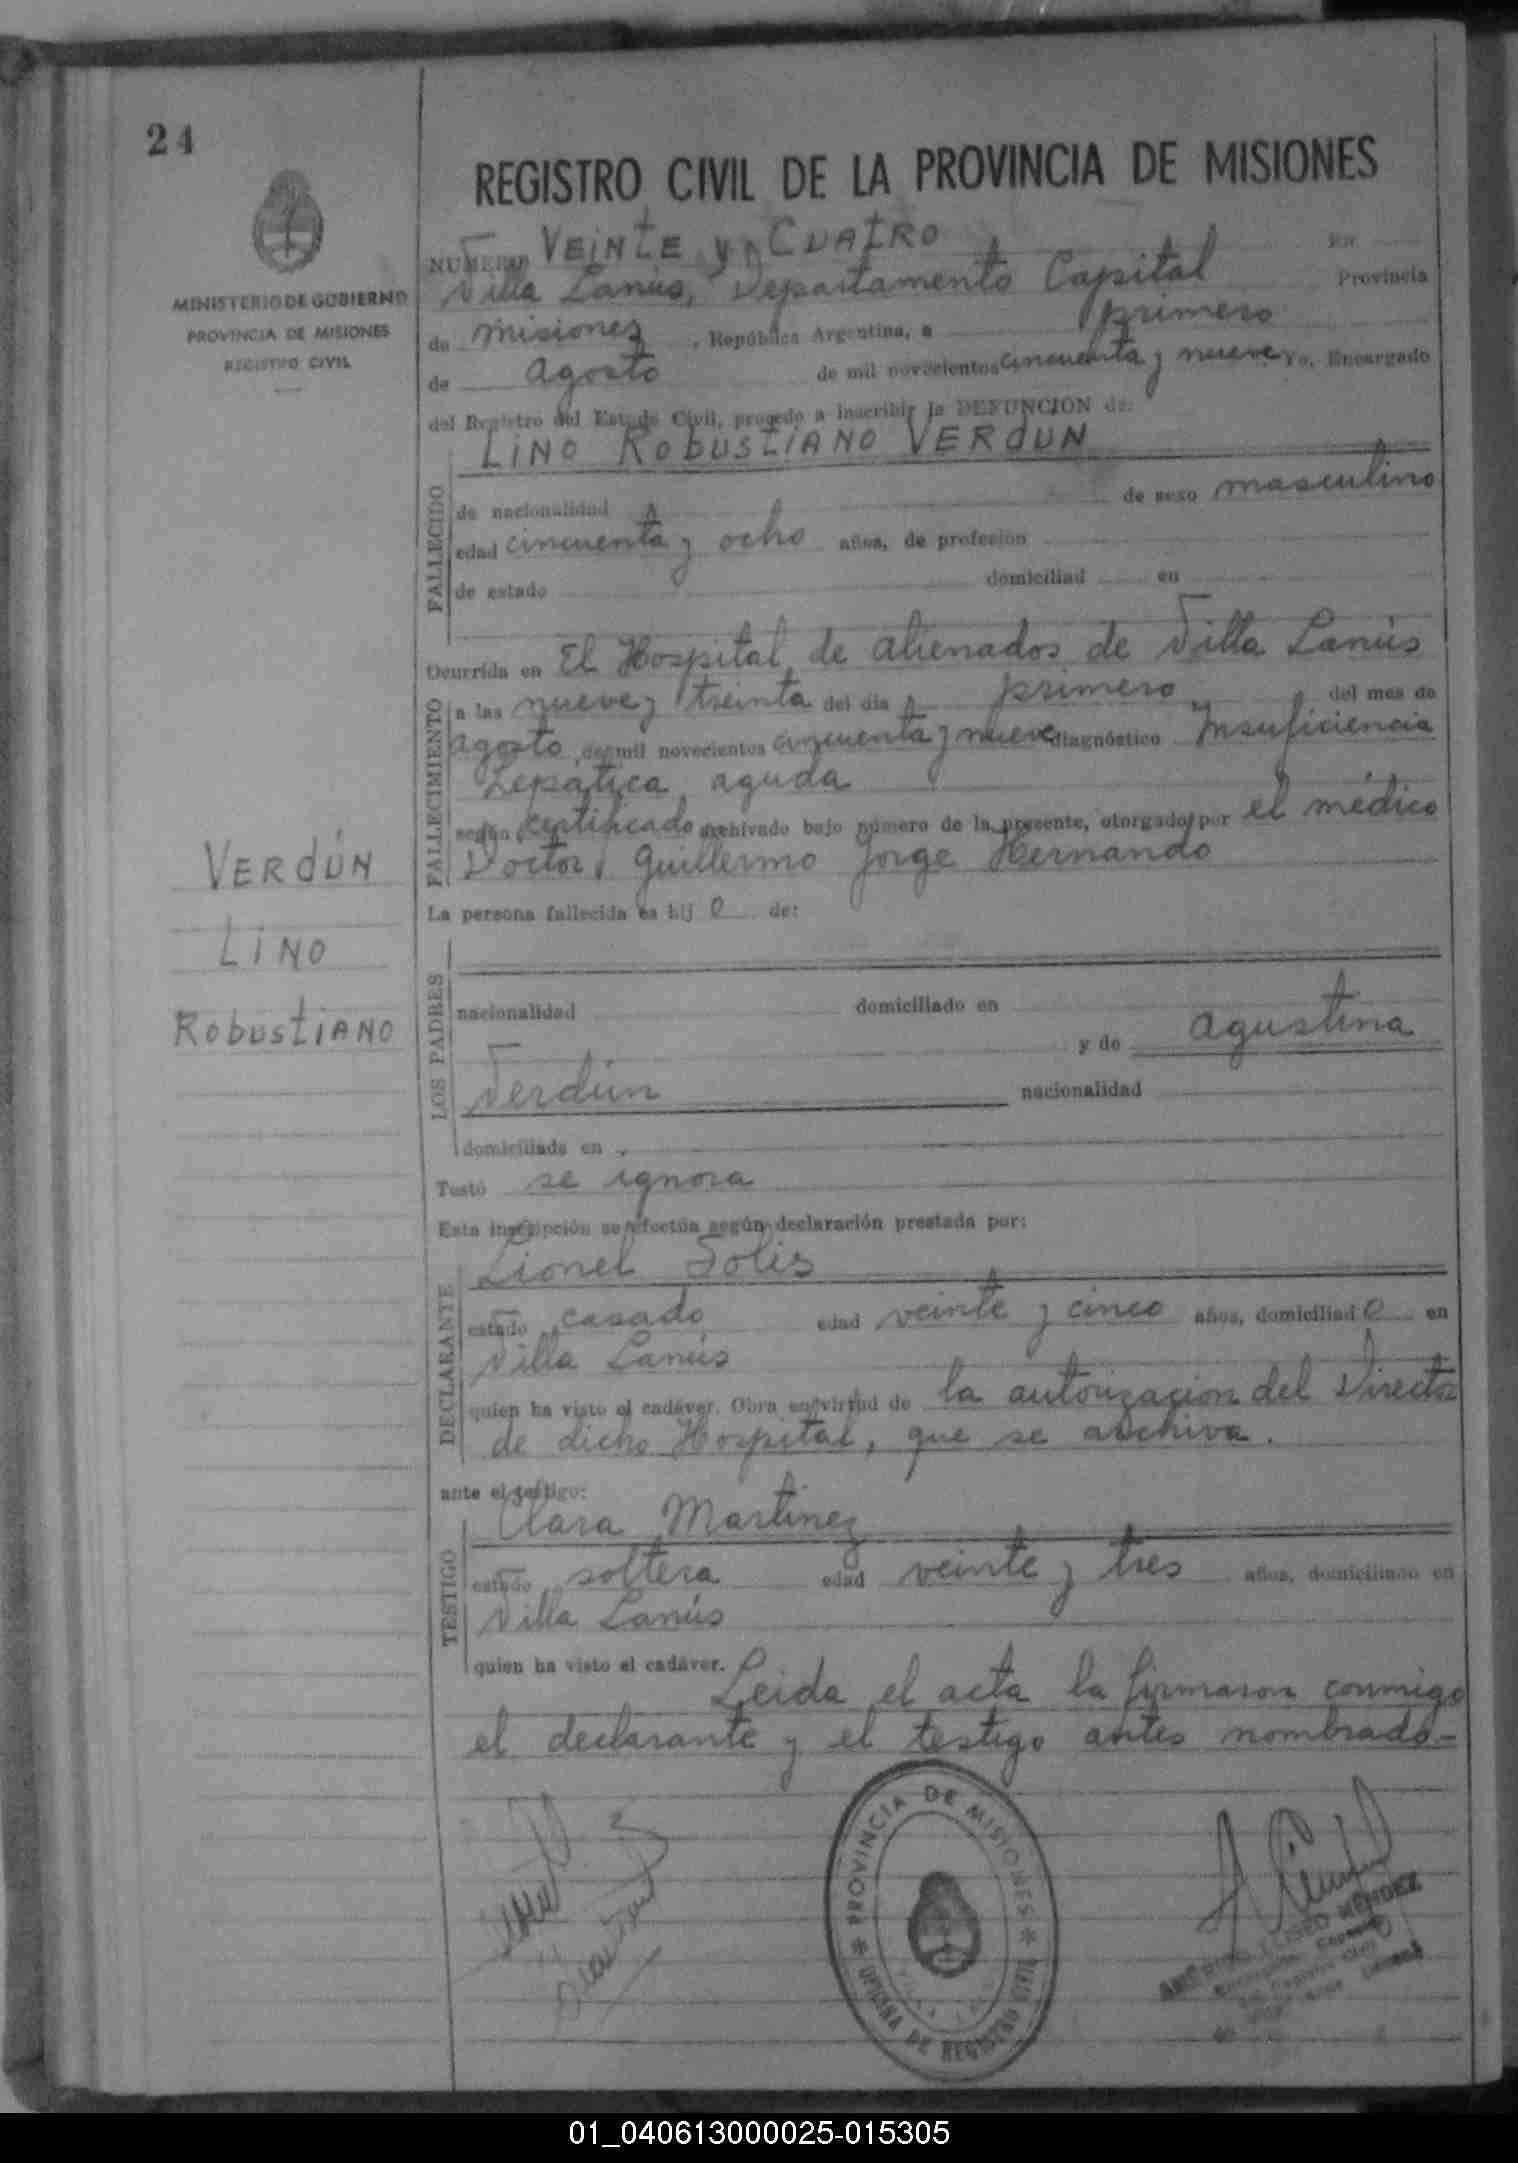 24
REGISTRO CIVIL DE LA PROVINCIA DE MISIONES
MINISTERIO DE GOBIERNO
PROVINCIA DE MISIONES
REGISTRO CIVIL
NUMERO VEINTE y CUATRO En
Villa Lanús, Departamento Capital Provincia
de Misiones, República Argentina, a primero
de Agosto de mil novecientos cincuenta y nueve Yo, Encargado
del Registro del Estado Civil, procedo a inscribir la DEFUNCION de:
LINO ROBUSTIANO VERDUN
FALLECIDO
de nacionalidad de sexo masculino
edad cincuenta y ocho años, de profesión
de estado domiciliad en
Ocurrida en El Hospital de alienados de Villa Lanús
FALLECIMIENTO
a las nueve y treinta del día primero del mes de
Agosto de mil novecientos cincuenta y nueve diagnóstico Insuficiencia
hepática aguda
según certificado archivado bajo número de la presente, otorgado por el médico
Doctor, Guillermo Jorge Hernando
VERDÚN
LINO
ROBUSTIANO
La persona fallecida es hij o de:
LOS PADRES
nacionalidad domiciliado en
y de Agustina
Verdún nacionalidad
domiciliada en
Testó se ignora
Esta inscripción se efectúa según declaración prestada por:
Lionel Solis
DECLARANTE
estado casado edad veinte y cinco años, domiciliad o en
Villa Lanús
quien ha visto el cadáver. Obra en virtud de la autorización del Director
de dicho Hospital, que se archiva.
ante el testigo:
Clara Martinez
TESTIGO
estado soltera edad veinte y tres años, domiciliado en
Villa Lanús
quien ha visto el cadáver. Leida el acta la firmaron conmigo
el declarante y el testigo antes nombrado.-
PROVINCIA DE MISIONES
OFICINA DE REGISTRO CIVIL
MENDEZ
01_040613000025-015305